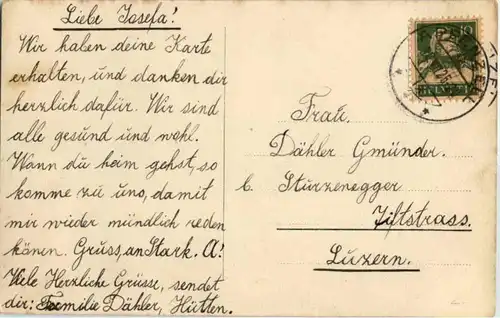 Liebe Josefa!
Wir haben deine Karte
erhalten, und danken dir
herzlich dafür. Wir sind
alle gesund und wohl.
Wann du heim gehst, so
komme zu uns, damit
mir wieder mündlich reden
könen. Gruss, an Stark. A!
Viele Herzliche Grüsse, sendet
dir: Familie Dähler, Hütten.
10
HELVETIA
Frau.
Dähler Gmünder.
b. Sturzenegger
Ziftstrass.
Luzern.